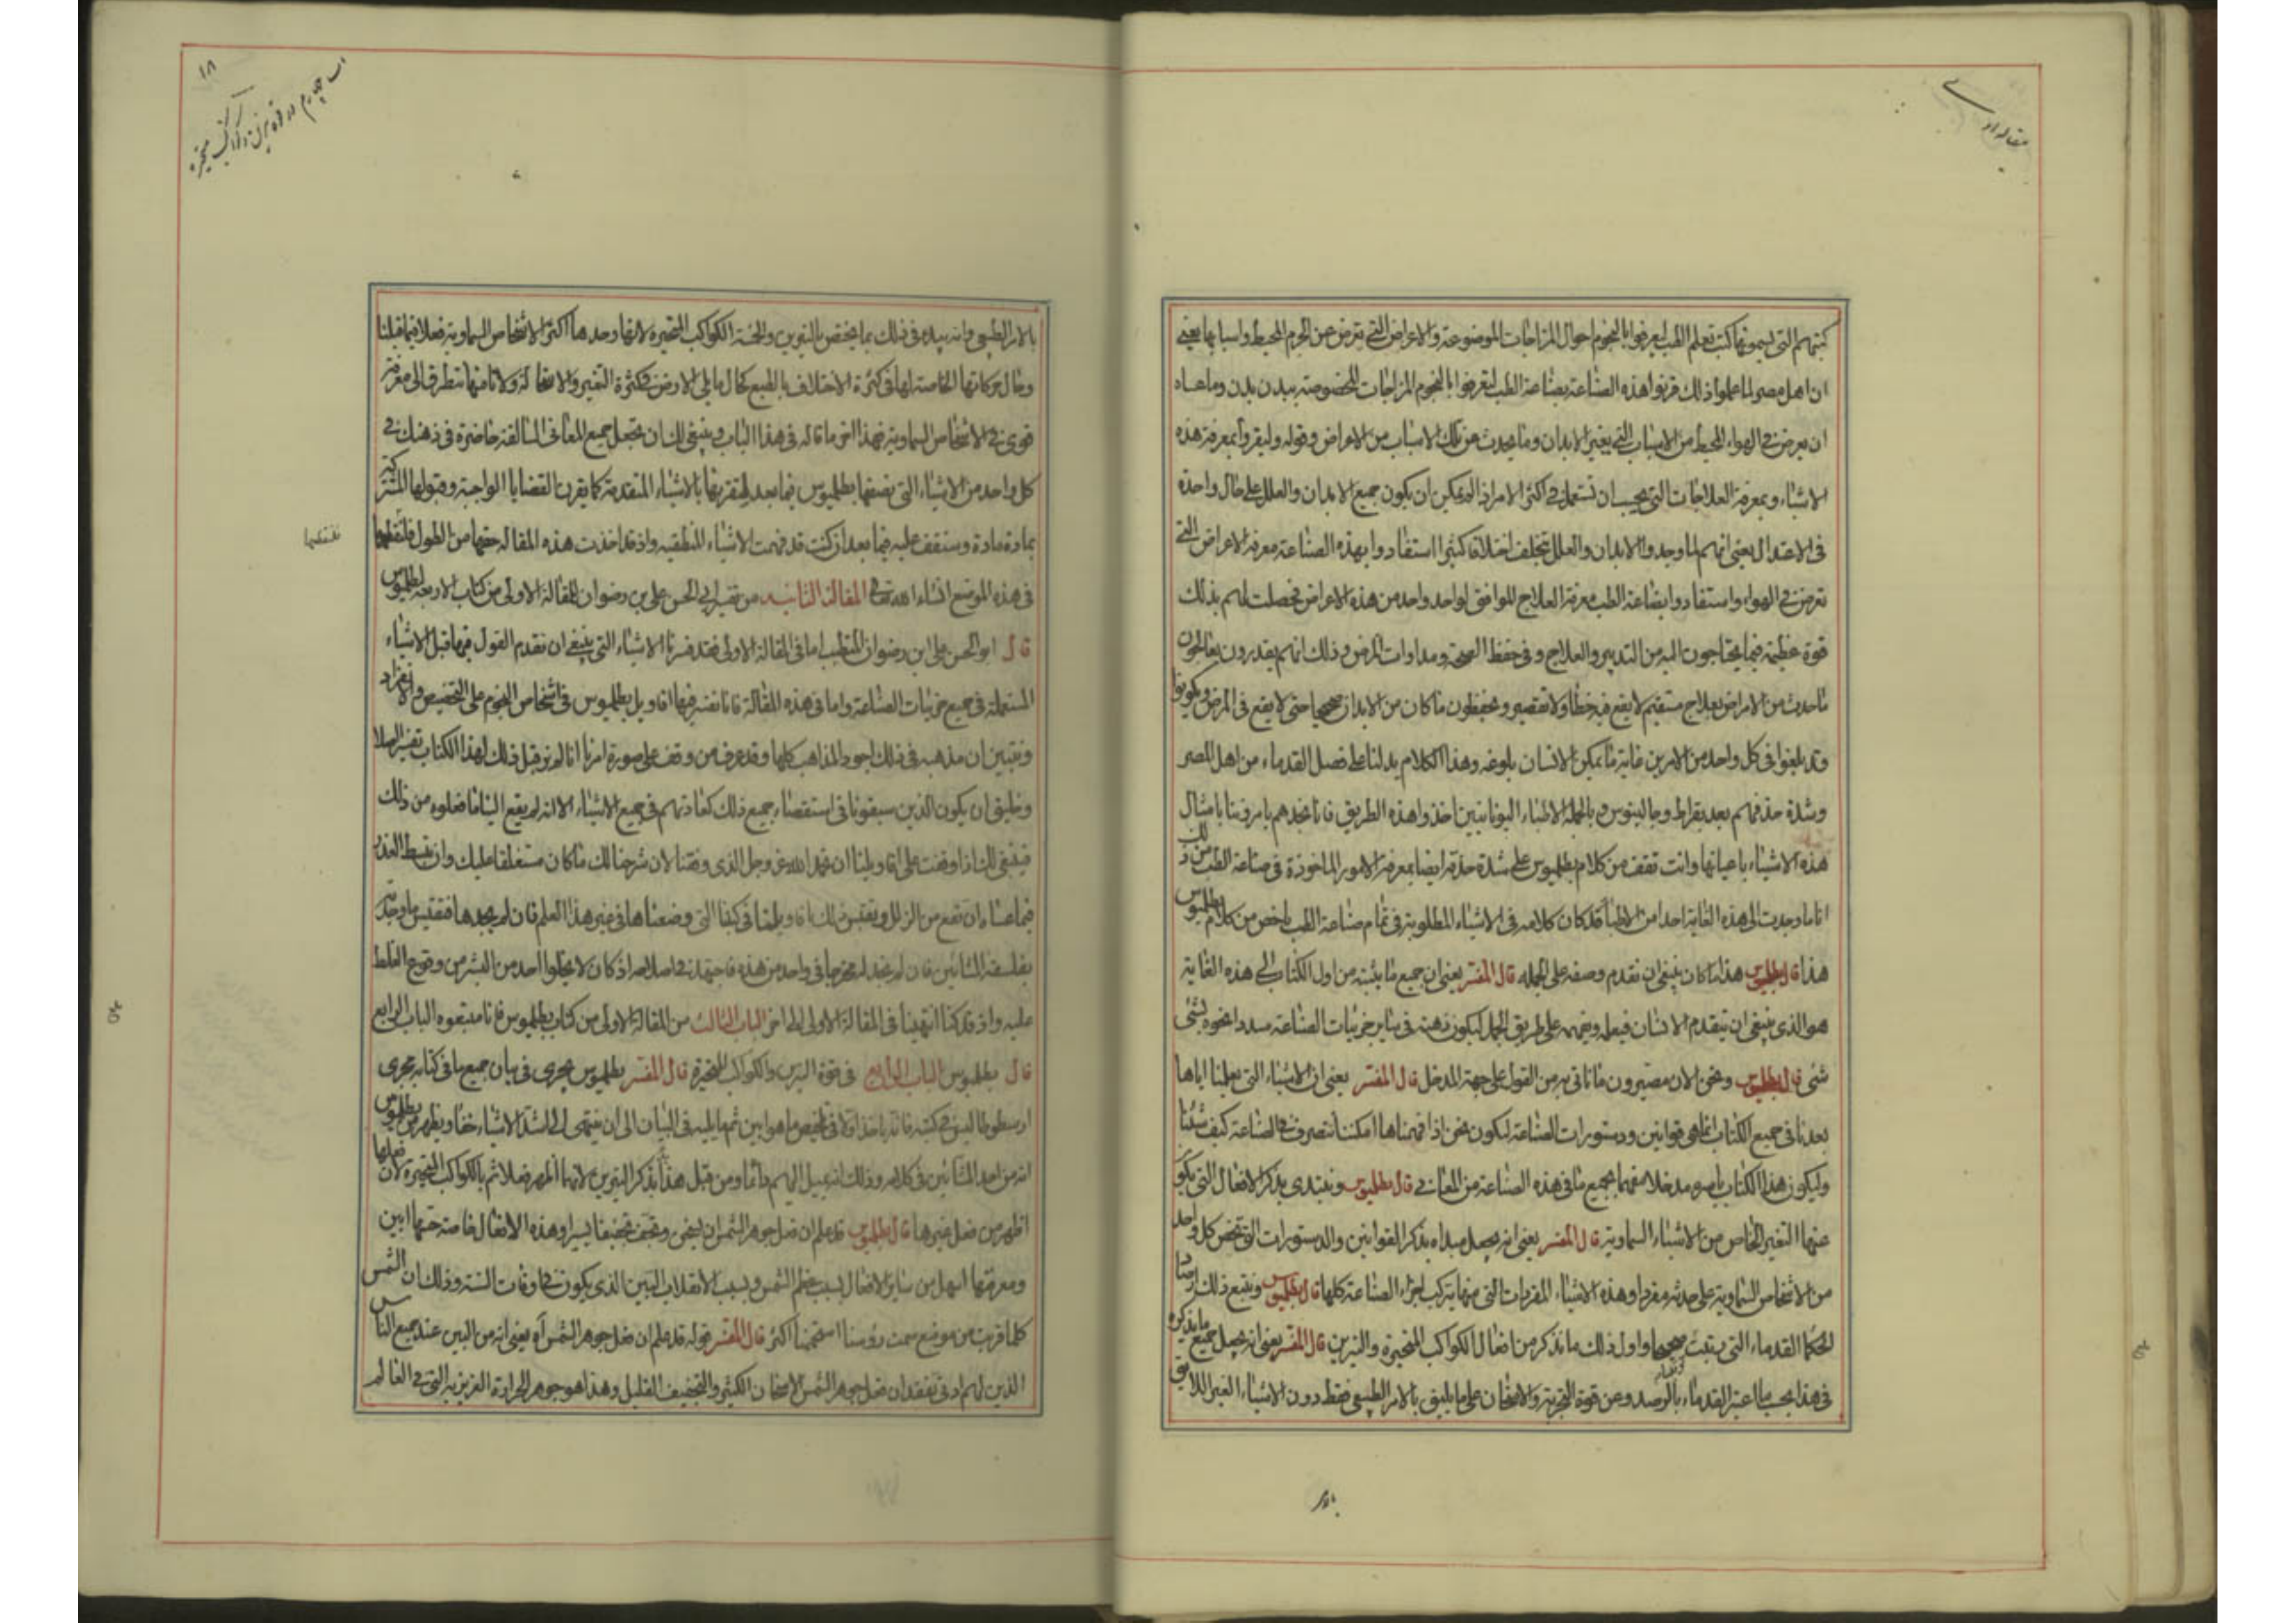 كتبهم التي يسمونها كتب تعلم الطب ليعرفوا بالنجوم احوال المزاجات الموضوعة والاعراض التي تعرض عن الجرم المحيط واسبابها يعني
ان اهل مصر لما علموا ذلك قرنوا هذه الصناعة بصناعة الطب ليعرفوا بالنجوم المزاجات المخصوصة ببدن بدن وما عساه
ان يعرض في الهواء المحيط من الاسباب التي يغير الابدان وما يحدث عن تلك الاسباب من الاعراض وقوله وليقروا بمعرفة هذه
الاشياء وبمعرفة العلاجات التي يجب ان تستعمل في اكثر الامر اذ لم يمكن ان يكون جميع الابدان والعلل على حال واحدة
في الاعتدال يعني انهم لما وجدوا الابدان والعلل تختلف اختلافا كثيرا استفادوا بهذه الصناعة معرفة الاعراض التي
تعرض في الهواء واستفادوا بصناعة الطب معرفة العلاج الموافق لواحد واحد من هذه الاعراض فحصلت لهم بذلك
قوة عظيمة فيما يحتاجون اليه من التدبير والعلاج وفي حفظ الصحة ومداوات المرض وذلك انهم يقدرون يعالجون
ما حدث من الامراض بعلاج مستقيم لا يقع فيه خطأ ولا تقصير ويحفظون ما كان من الابدان صحيحا حتى لا يقع في المرض ويكونوا
وقد بلغوا في كل واحد من الامرين غاية ما يمكن الانسان بلوغه وهذا الكلام يدلنا على فضل القدماء من اهل المصر
وشدة حذقهم بعد بقراط وجالينوس وبالجملة الاطباء اليونانيين اخذوا هذه الطريق فانا نجدهم يامروننا بامثال
هذه الاشياء باعيانها وانت تقف من كلام بطلميوس على شدة حذقه ايضا بمعرفة الامور الماخوذة في صناعة الطب من ذلك
انا ما وجدت الى هذه الغاية احدا من الاطباء قد كان كلامه في الاشياء المطلوبة في تمام صناعة الطب بالخص من كلام بطلميوس
هذا قال بطلميوس هذا ما كان ينبغي ان نقدم وصفه على الجملة قال المفسر يعني ان جميع ما يثبته من اول الكتاب الى هذه الغاية
هو الذي ينبغي ان يتقدم الانسان فيعلمه ويفهمه على طريق الجمل ليكون ذهنه في ساير جزئيات الصناعة مسددا نحوه بشئ
شئ قال بطلميوس ونحن الان مصيرون ما ناتي به من القول على جهة المدخل قال المفسر يعني ان الاشياء التي يعلمنا اياها
بعد ما في جميع الكتاب انما هي قوانين ودستورات الصناعة ليكون نحن اذا فهمناها امكننا نتصرف في الصناعة كيف شئنا
وليكون هذا الكتاب باسره مدخلا مفهما بجميع ما في هذه الصناعة من المعاني قال بطلميوس ونبتدي بذكر الافعال التي يكون
عنها التغير الخاص من الاشياء السماوية قال المفسر يعني انه يجعل مبداه بذكر القوانين والدستورات التي تخص كل واحد
من الاشخاص السماوية على حدته مفردا وهذه الاشياء المفردات التي منها يتركب اجزاء الصناعة كلها قال بطلميوس ونتبع ذلك ارصاد
الحكما القدماء التي يثبت صحيحا واول ذلك ما نذكر من افعال الكواكب المتحيرة والنيرين قال المفسر يعني انه يجعل جميع ما يذكره
في هذا بحسب ما اعتبر القدماء بالرصد وعن قوة التجربة والامتحان على ما يليق بالامر الطبيعي فقط دون الاشياء الغير اللايقة
بالامر
١٨
بالامر الطبيعي وانه يبدء في ذلك بما يختص بالنيرين والخمسة الكواكب المتحيرة لانها وحدها اكثر الاشخاص السماوية فعلا فيما قبلنا
وحال حركاتها الخاصة لها في كثرة الاختلاف بالطبع كحال ما يلي الارض في كثرة التغير والاستحالة ولانا منها نتطرق الى معرفة
قوى في الاشخاص السماوية فهذا اخر ما قاله في هذا الباب وينبغي لك ان تجعل جميع المعاني السالفة حاضرة في ذهنك في
كل واحد من الاشياء التي يصفها بطلميوس فيما بعد لتقرنها بالاشياء المتقدمة كما يقرن القضايا الواجبة وقبولها المشتركة
بمادة مادة وستقف عليه فيما بعد ان كنت قد فهمت الاشياء المنطقية واذ قد اخذت هذه المقالة حقها من الطول فلنقطعها
في هذه الموضع انشاء الله تعالى المقالة الثانيه من تفسير ابي الحسن علي بن رضوان للمقالة الاولى من كتاب الاربعة لبطلميوس
قال ابو الحسن علي ابن رضوان المتطبب اما في المقالة الاولى فقد فسرنا الاشياء التي ينبغي ان نقدم القول فيها قبل الاشياء
المستعملة في جميع جزئيات الصناعة واما في هذه المقالة فانا نفسر فيها اقاويل بطلميوس في اشخاص النجوم على التخصيص والانفراد
ونتبين ان مذهبه في ذلك اجود المذاهب كلها وقد عرف من وقف على صورة امرنا انا لم نر قبل ذلك لهذا الكتاب تفسيرا اصلا
وخليق ان يكون الذين سبقونا في استقصاء جميع ذلك كعادتهم في جميع الاشياء الا انه لم يقع الينا ما فعلوه من ذلك
فينبغي لك اذا وقفت على اقاويلنا ان تحمد الله عز وجل الذي وفقنا لان شرحنا لك ما كان مستغلقا عليك وان تبسط العذر
فيما عساه ان تقع من الزلل وتقتبس لك اقاويلنا في كتبنا التي وضعناها في غير هذا العلم فان لم تجدها فقتبس ما وجدته
بفلسفة المشائين فان لم تجد له مخرجا في واحد من هذه فاجتهد في اصلاحه اذ كان لا يخلوا احد من البشر من وقوع الغلط
عليه واذ قد كنا انتهينا في المقالة الاولى الى اخر الباب الثالث من المقالة الاولى من كتاب بطلميوس فانا متبعوه الباب الرابع
قال بطلميوس الباب الرابع في قوة النيرين والكواكب المتحيرة قال المفسر بطلميوس يجري في بيان جميع ما في كتابه مجرى
ارسطوطاليس في كتبه فانه ياخذ اولا في تلخيص ما هو ابين ثم ما يليه في البيان الى ان ينتهي الى اشد الاشياء خفاء ويظهر من بطلميوس
انه من احد المشائين في كلامه وذلك انه يميل اليهم دائما ومن قبل هذا يذكر النيرين لانهما اظهر فعلا ثم بالكواكب المتحيرة لان فعلها
اظهر من فعل غيرها قال بطلميوس قد علم ان فعل جوهر الشمس ان يسخن ويجفف تجفيفا يسيرا وهذه الافعال خاصة حسها ابين
ومعرفتها اسهل من ساير الافعال بسبب عظم الشمس وبسبب الانقلاب البين الذي يكون في اوقات السنة وذلك ان الشمس
كلما قربت من موضع سمت رؤسنا اسخننا اكثر قال المفسر قوله قد علم ان فعل جوهر الشمس اه يعني انه من البين عند جميع الناس
الذين لهم ادنى تفقد ان فعل جوهر الشمس الاسخان الكثير والتجفيف القليل وهذا هو جوهر الحرارة الغريزية التي في العالم